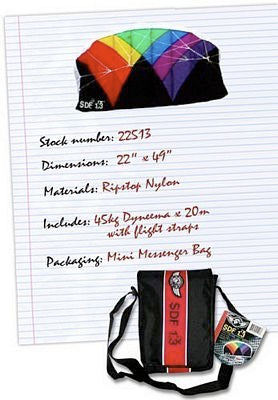 SDF 1.3
Stock number: 22513
Dimensions: 22" x 49"
Materials: Ripstop Nylon
Includes: 45kg Dyneema x 20m
with flight straps
Packaging: Mini Messenger Bag
SDF 1.3
SDF 1.3